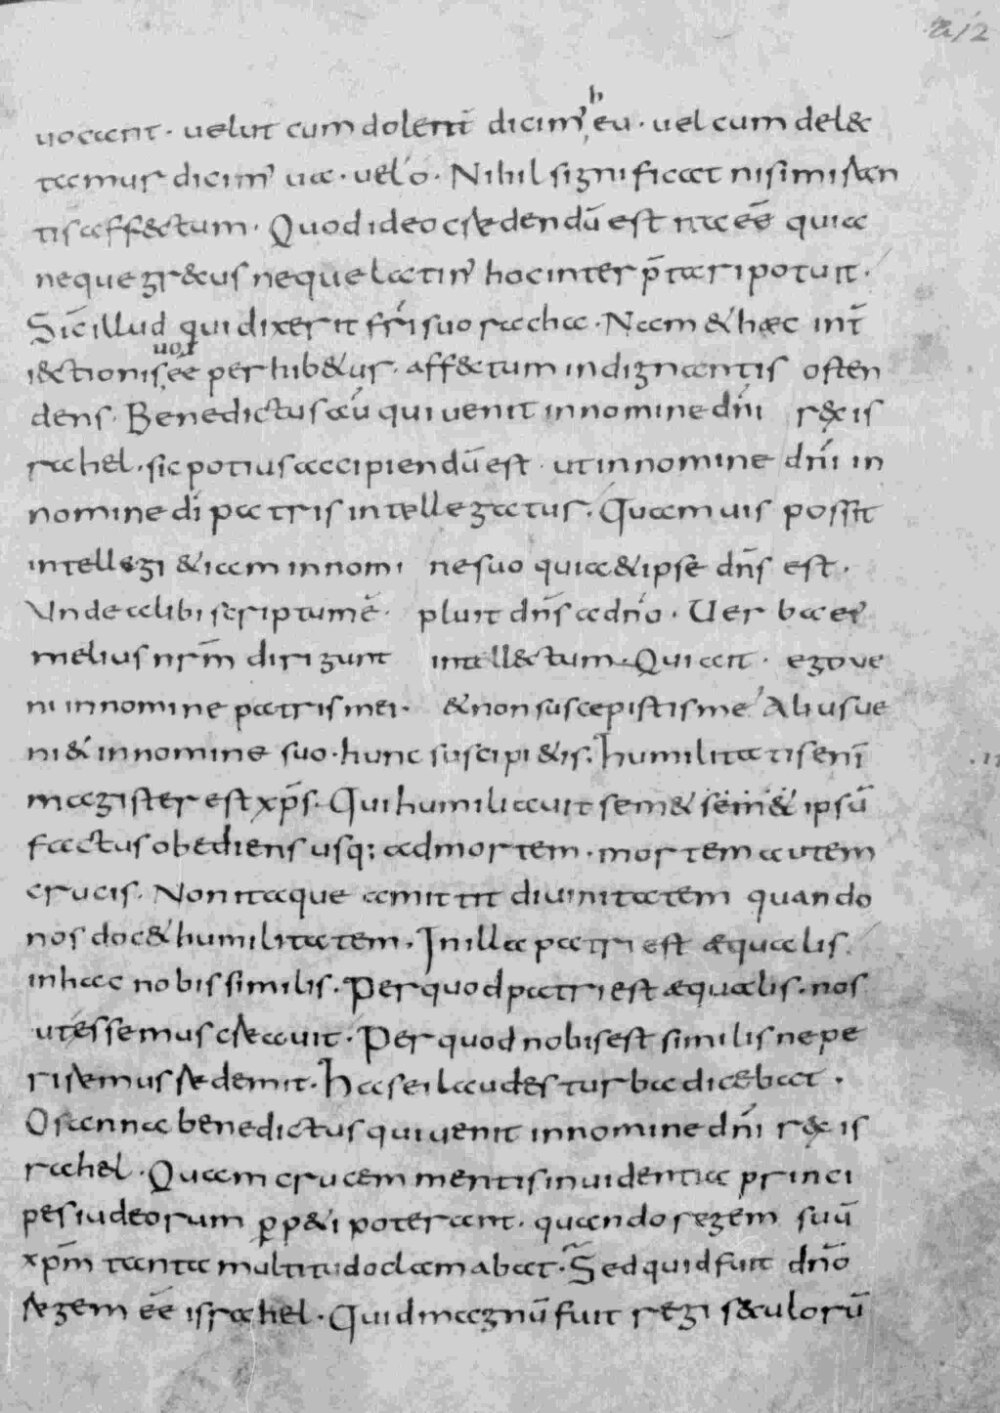 uocant· uelut cum dolent̄ dicim᾽ heu· uel cum del&
tamur dicim᾽ ua· uel o· Nihil significat nisi miran
tis aff&ctum· Quod ideo credendū est ita eē quia
neque gr&cus neque latin᾽ hoc interp̄tari potuit·
Sic̄ illud qui dixerit fr̄i suo racha· Nam & hæc int̄
i&ctionis uox eē perhib&ur· aff&ctum indignantis osten
dens· Benedictus aū qui uenit in nomine dn̄i r&x is
rahel· sic potius accipiendū est· ut in nomine dn̄i in
nomine dī patris intellegatus· Quamuis possit
intellegi &iam in nomi ne suo quia & ipse dn̄s est·
Unde alibi scriptum ē· pluit dn̄s a dn̄o· Uerba ei᾽
melius nr̄m dirigunt intell&ctum· Qui ait· ego ue
ni in nomine patris mei· & non suscepistis me Alius ue
ni& in nomine suo· hunc suscipi&is· humilitatis enī
magister est xp̄s· Qui humiliauit sem& sem& ipsū
factus obediens usq; ad mortem· mortem autem
crucis· Non itaque amittit diuinitatem quando
nos doc& humilitatem· In illa patri est æqualis
in hac nobis similis· Per quod patri est æqualis· nos
ut essemus creauit· Per quod nobis est similis ne pe
riremus redemit· Has ei laudes turba dicebat·
Osanna benedictus qui uenit in nomine dn̄i r&x is
rahel· Quam crucem mentis inuidentia princi
pes iudeorum perp&i poterant· quando regem suū
xp̄m tanta multitudo clamabat· Sed quid fuit dn̄o
regem eē israhel· Quid magnū fuit regi s&culorū